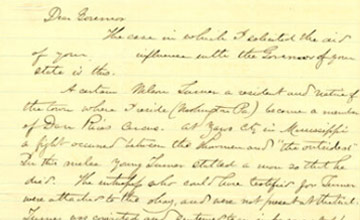 Dear Governor
The case in which I solicited the aid
of your influence with the Governor of your
state is this.
A certain Wilson Turner a resident and native of
the town where I reside (Washington Pa) became a member
of Dan Rices Circus. At Yazoo City in Mississippi
a fight occurred between the showmen and "the outsiders"
In the melee young Turner stabbed a man so that he
died. The who could have testified for Turner
were attached to the , and were not present at the trial
Turner was convicted and